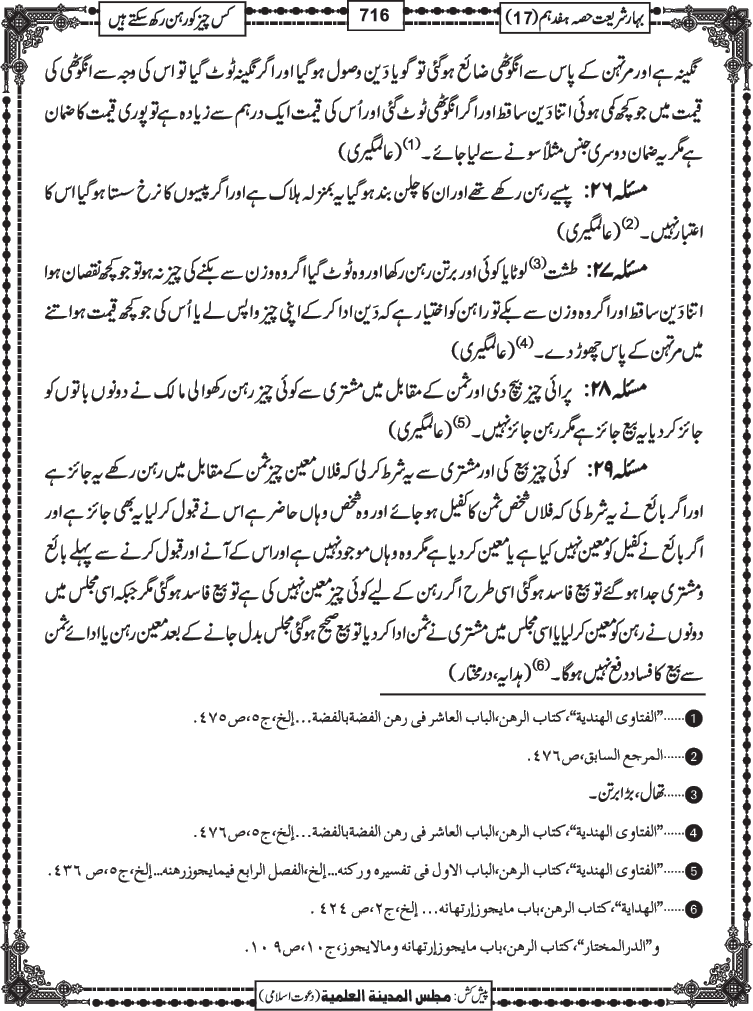 بہارِ شریعت حصہ ہفدہم (17)
716
کس چیز کو رہن رکھ سکتے ہیں
نگینہ ہے اور مرتہن کے پاس سے انگوٹھی ضائع ہوگئی تو گویا دَین وصول ہوگیا اور اگر نگینہ ٹوٹ گیا تو اس کی وجہ سے انگوٹھی کی
قیمت میں جو کچھ کمی ہوئی اتنا دَین ساقط اور اگر انگوٹھی ٹوٹ گئی اور اُس کی قیمت ایک درہم سے زیادہ ہے تو پوری قیمت کا ضمان
ہے مگر یہ ضمان دوسری جنس مثلاً سونے سے لیا جائے۔(1) (عالمگیری)
مسئلہ ۲۶: پیسے رہن رکھے تھے اور ان کا چلن بند ہوگیا یہ بمنزلہ ہلاک ہے اور اگر پیسوں کا نرخ سستا ہوگیا اس کا
اعتبار نہیں۔(2) (عالمگیری)
مسئلہ ۲۷: طشت(3) لوٹا یا کوئی اور برتن رہن رکھا اور وہ ٹوٹ گیا اگر وہ وزن سے بکنے کی چیز نہ ہو تو جو کچھ نقصان ہوا
اتنا دَین ساقط اور اگر وہ وزن سے بکے تو راہن کو اختیار ہے کہ دَین ادا کرکے اپنی چیز واپس لے یا اُس کی جو کچھ قیمت ہو اتنے
میں مرتہن کے پاس چھوڑ دے۔(4) (عالمگیری)
مسئلہ ۲۸: پرائی چیز بیچ دی اور ثمن کے مقابل میں مشتری سے کوئی چیز رہن رکھوالی مالک نے دونوں باتوں کو
جائز کردیا یہ بیع جائز ہے مگر رہن جائز نہیں۔(5) (عالمگیری)
مسئلہ ۲۹: کوئی چیز بیع کی اور مشتری سے یہ شرط کرلی کہ فلاں معین چیز ثمن کے مقابل میں رہن رکھے یہ جائز ہے
اور اگر بائع نے یہ شرط کی کہ فلاں شخص ثمن کا کفیل ہوجائے اور وہ شخص وہاں حاضر ہے اس نے قبول کرلیا یہ بھی جائز ہے اور
اگر بائع نے کفیل کو معین نہیں کیا ہے یا معین کردیا ہے مگر وہ وہاں موجود نہیں ہے اور اس کے آنے اور قبول کرنے سے پہلے بائع
و مشتری جدا ہوگئے تو بیع فاسد ہوگئی اسی طرح اگر رہن کے لیے کوئی چیز معین نہیں کی ہے تو بیع فاسد ہوگئی مگر جبکہ اسی مجلس میں
دونوں نے رہن کو معین کرلیا یا اسی مجلس میں مشتری نے ثمن ادا کردیا تو بیع صحیح ہوگئی مجلس بدل جانے کے بعد معین رہن یا ادائے ثمن
سے بیع کا فساد دفع نہیں ہوگا۔(6) (ہدایہ، درمختار)
1......”الفتاوی الهندية“، کتاب الرهن، الباب العاشر فی رهن الفضة بالفضة...إلخ، ج٥، ص٤٧٥.
2......المرجع السابق، ص٤٧٦.
3......تھال، بڑا برتن۔
4......”الفتاوی الهندية“، کتاب الرهن، الباب العاشر فی رهن الفضة بالفضة...إلخ، ج٥، ص٤٧٦.
5......”الفتاوی الهندية“، کتاب الرهن، الباب الاول فی تفسيره ورکنه...إلخ، الفصل الرابع فيما يجوز رهنه...إلخ، ج٥، ص ٤٣٦.
6......”الهداية“، کتاب الرهن، باب ما يجوز إرتهانه... إلخ، ج٢، ص ٤٢٤.
و”الدر المختار“، کتاب الرهن، باب ما يجوز إرتهانه وما لا يجوز، ج١٠، ص١٠٩.
پیش کش: مجلس المدينة العلمية (دعوت اسلامی)